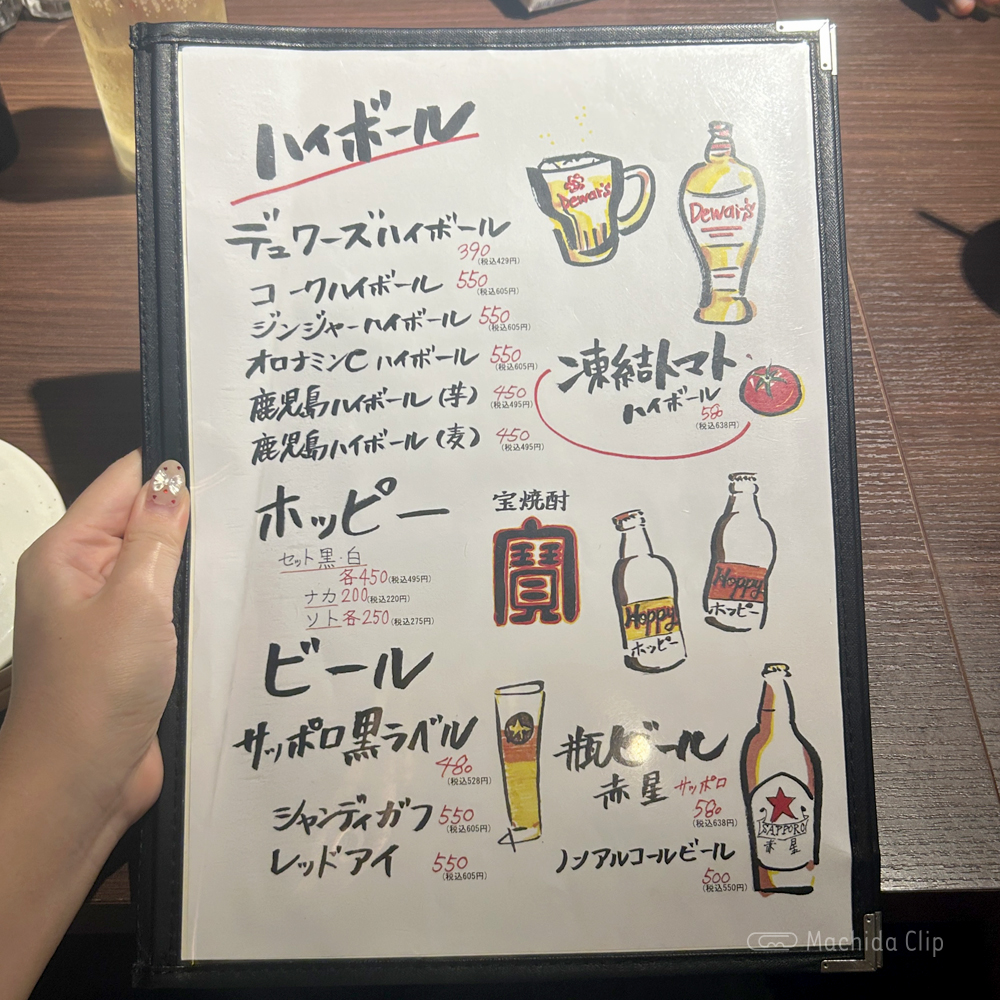 ハイボール
Dewar's
Dewar's
デュワーズハイボール
390
(税込429円)
コークハイボール 550
(税込605円)
ジンジャーハイボール 550
(税込605円)
オロナミンC ハイボール 550
(税込605円)
鹿児島ハイボール (芋) 450
(税込495円)
鹿児島ハイボール (麦) 450
(税込495円)
凍結トマト
ハイボール
580
(税込638円)
ホッピー
セット黒・白
各450(税込495円)
ナカ 200(税込220円)
ソト各250(税込275円)
宝焼酎
寶
Hoppy
ホッピー
Hoppy
ホッピー
ビール
サッポロ黒ラベル
480
(税込528円)
シャンディガフ 550
(税込605円)
レッドアイ 550
(税込605円)
瓶ビール
赤星 サッポロ
580
(税込638円)
ノンアルコールビール
500
(税込550円)
SAPPORO
赤星
Machida Clip